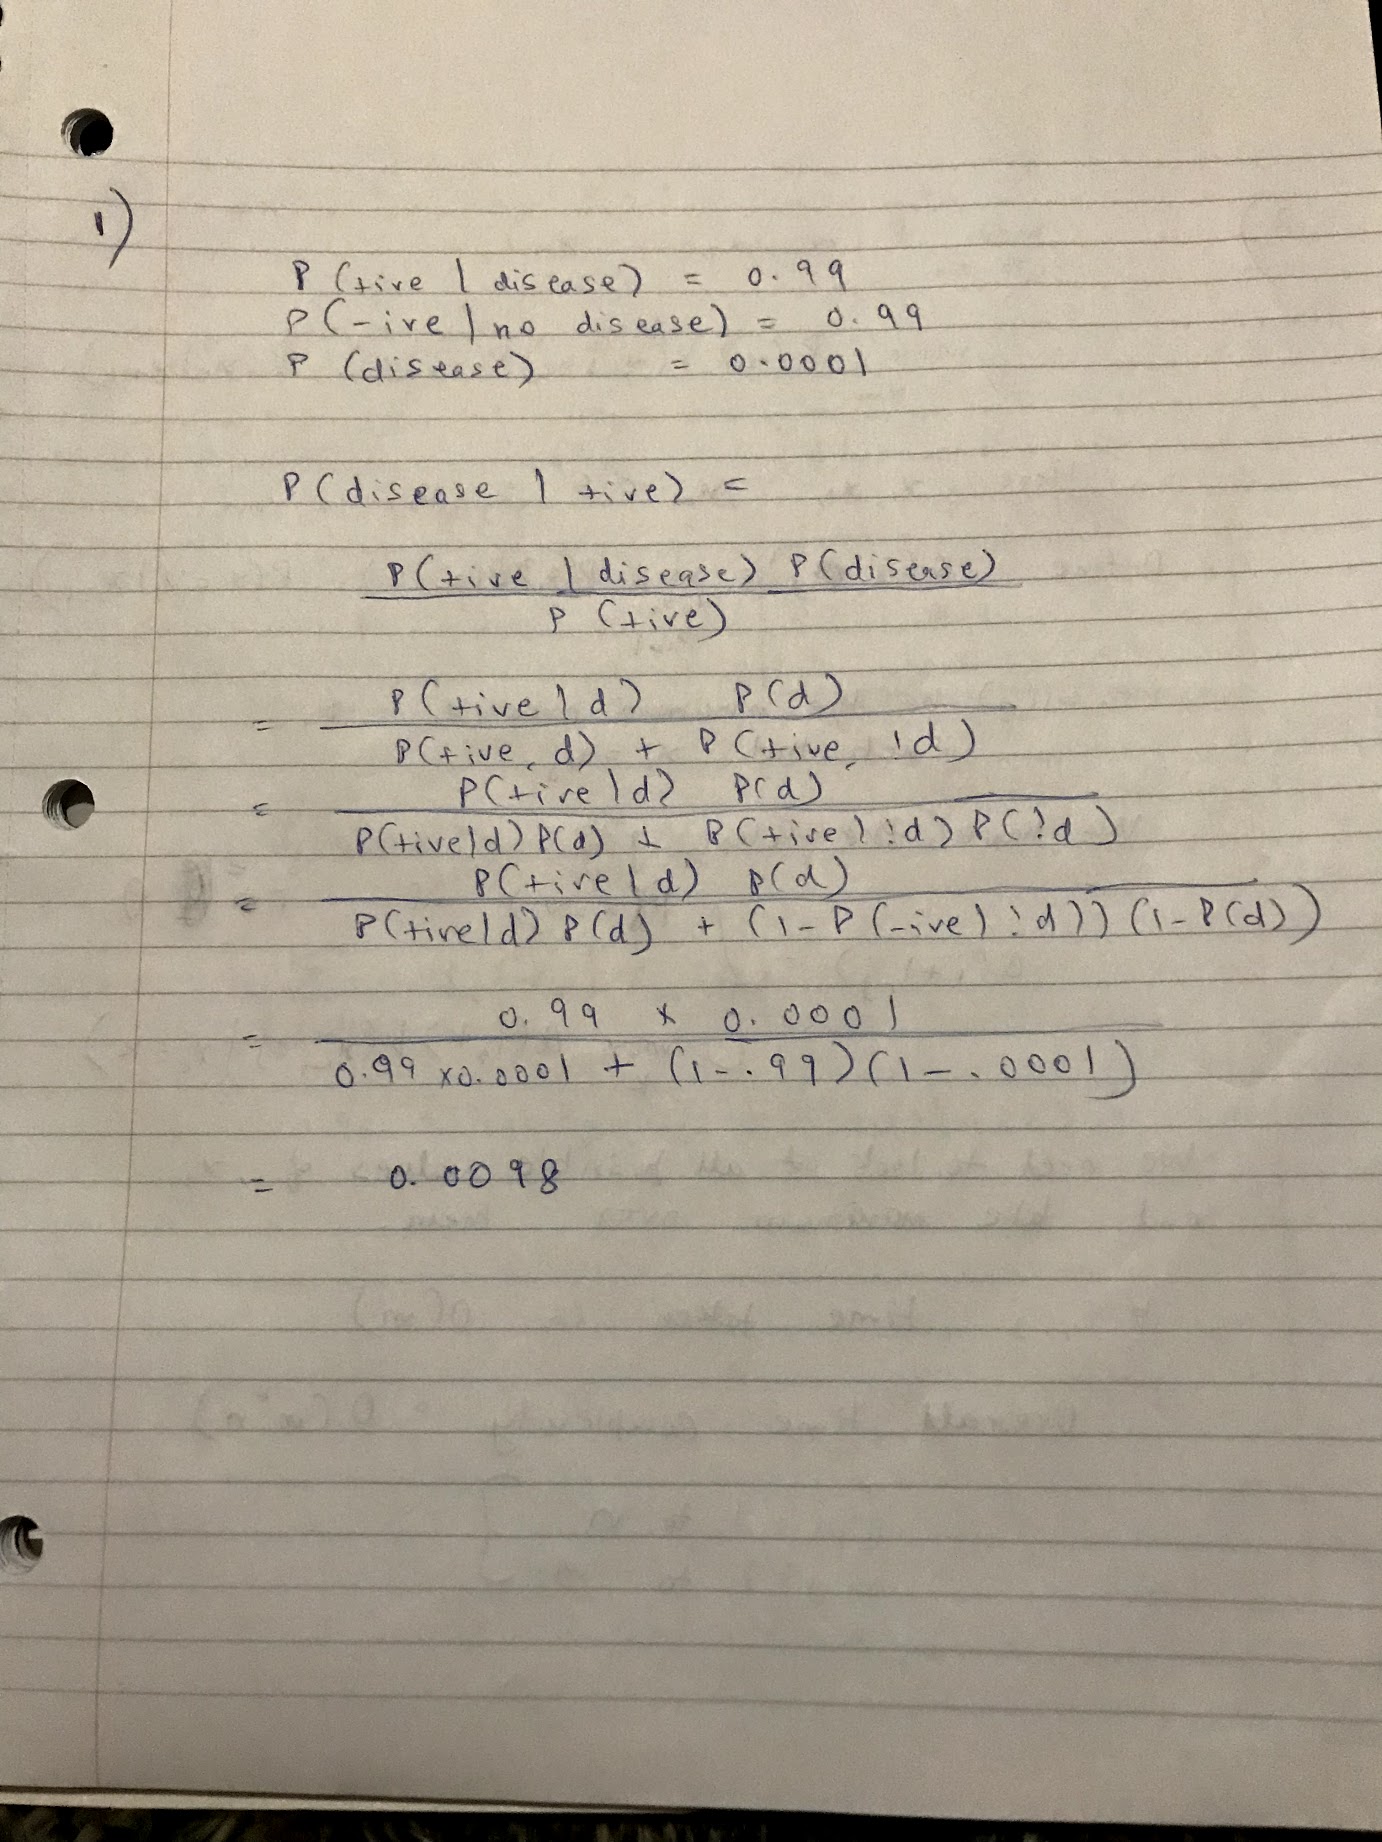 1)
P (+ive | disease) = 0.99
P(-ive | no disease) = 0.99
P (disease) = 0.0001
P(disease | +ive) =
P(+ive | disease) P(disease)
P (+ive)
= P(+ive | d) P(d)
P(+ive, d) + P(+ive, !d)
= P(+ive | d) P(d)
P(+ive|d) P(d) + P(+ive | !d) P(!d)
= P(+ive | d) P(d)
P(+ive|d) P(d) + (1-P(-ive | !d)) (1-P(d))
= 0.99 x 0.0001
0.99 x0.0001 + (1-.99)(1-.0001)
= 0.0098